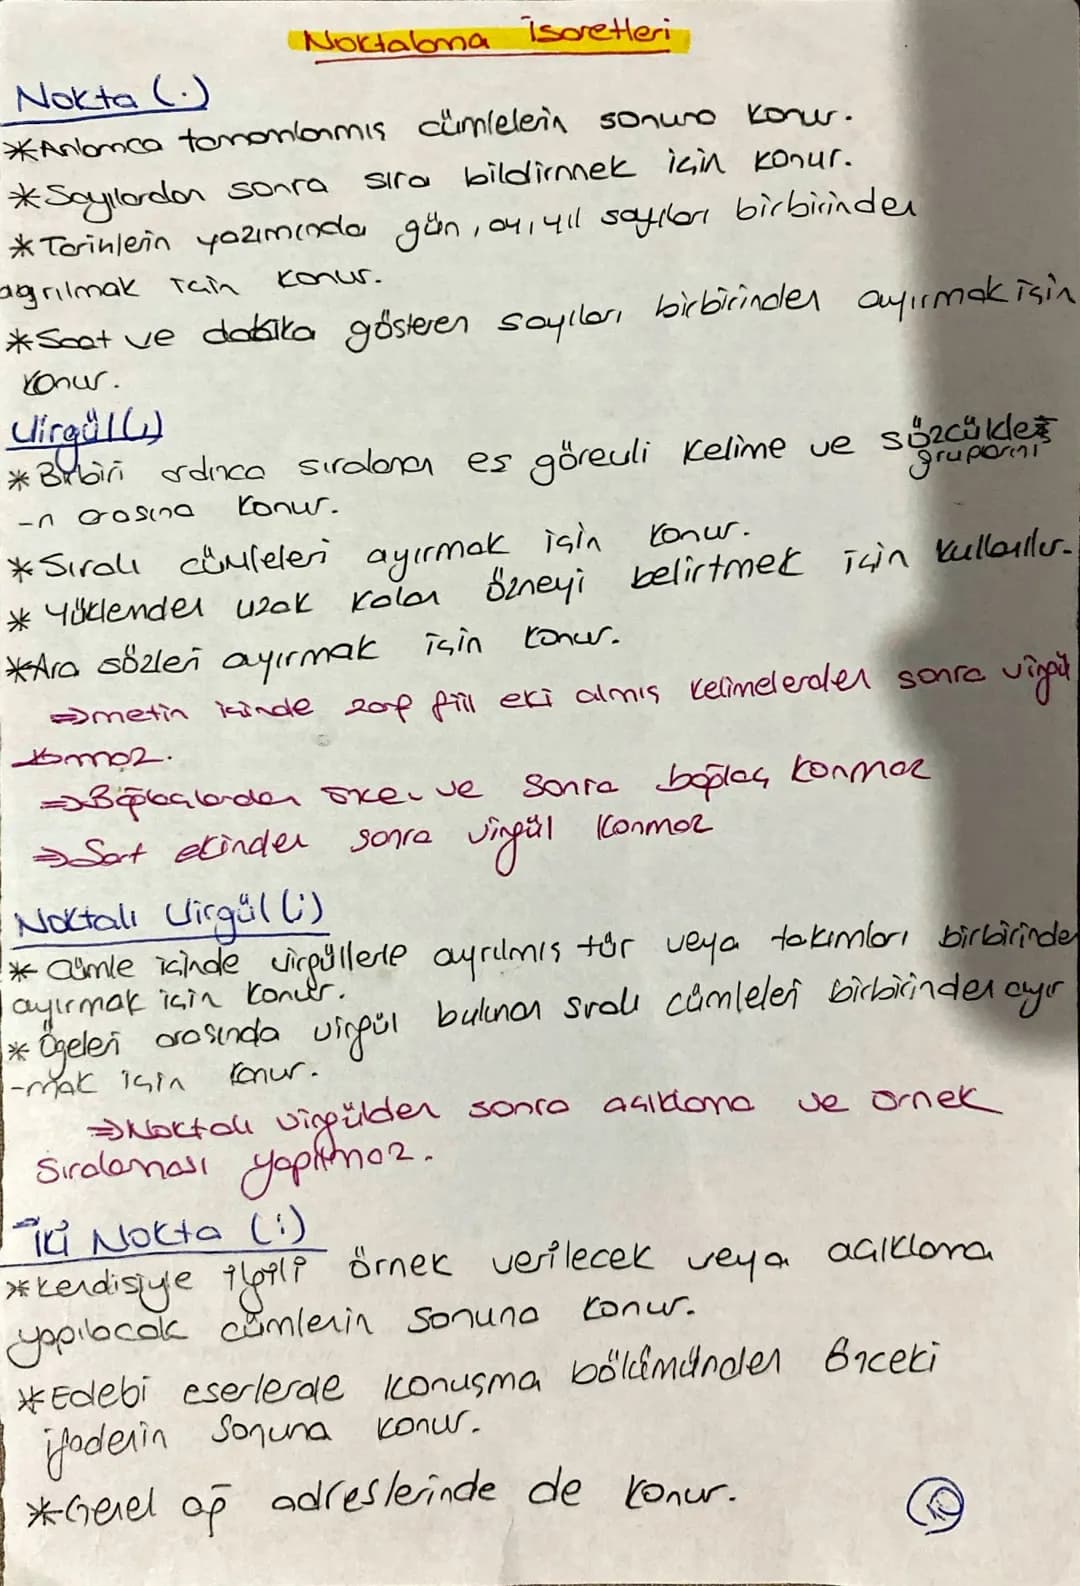 Noktalama İşaretleri
Nokta (.)
*Anlamca tamamlanmış cümlelerin sonuna konur.
*Sayılardan sonra sıra bildirmek için konur.
*Tarihlerin yazımında gün, ay, yıl sayıları birbirinden
agrılmak için konur.
*Saat ve dakika gösteren sayıları birbirinden ayırmak için
konur.
Virgül (,)
*Birbiri ardınca sıralanan eş görevli kelime ve sözcükler
gruplarını
-n arasına konur.
*Sıralı cümleleri ayırmak için konur.
*Yüklemden uzak kalan özneyi belirtmek için kullanılır.
*Ara sözleri ayırmak için konur.
⇒metin içinde zarf fiil eki almış kelimelerden sonra virgül
konmaz.
⇒Bağlaçlardan önce ve sonra bağlaç konmaz
⇒Şart ekinden sonra virgül konmaz
Noktalı Virgül (;)
*Cümle içinde virgüllerle ayrılmış tür veya takımları birbirinden
ayırmak için konur.
*Ögeleri arasında virgül bulunan sıralı cümleleri birbirinden ayır
-mak için konur.
⇒Noktalı virgülden sonra açıklama ve örnek
sıralaması yapılmaz.
İki Nokta (:)
*Kendisiyle ilgili örnek verilecek veya açıklama
yapılacak cümlenin sonuna konur.
*Edebi eserlerde konuşma bölümünden önceki
ifadenin sonuna konur.
*Genel ağ adreslerinde de konur.